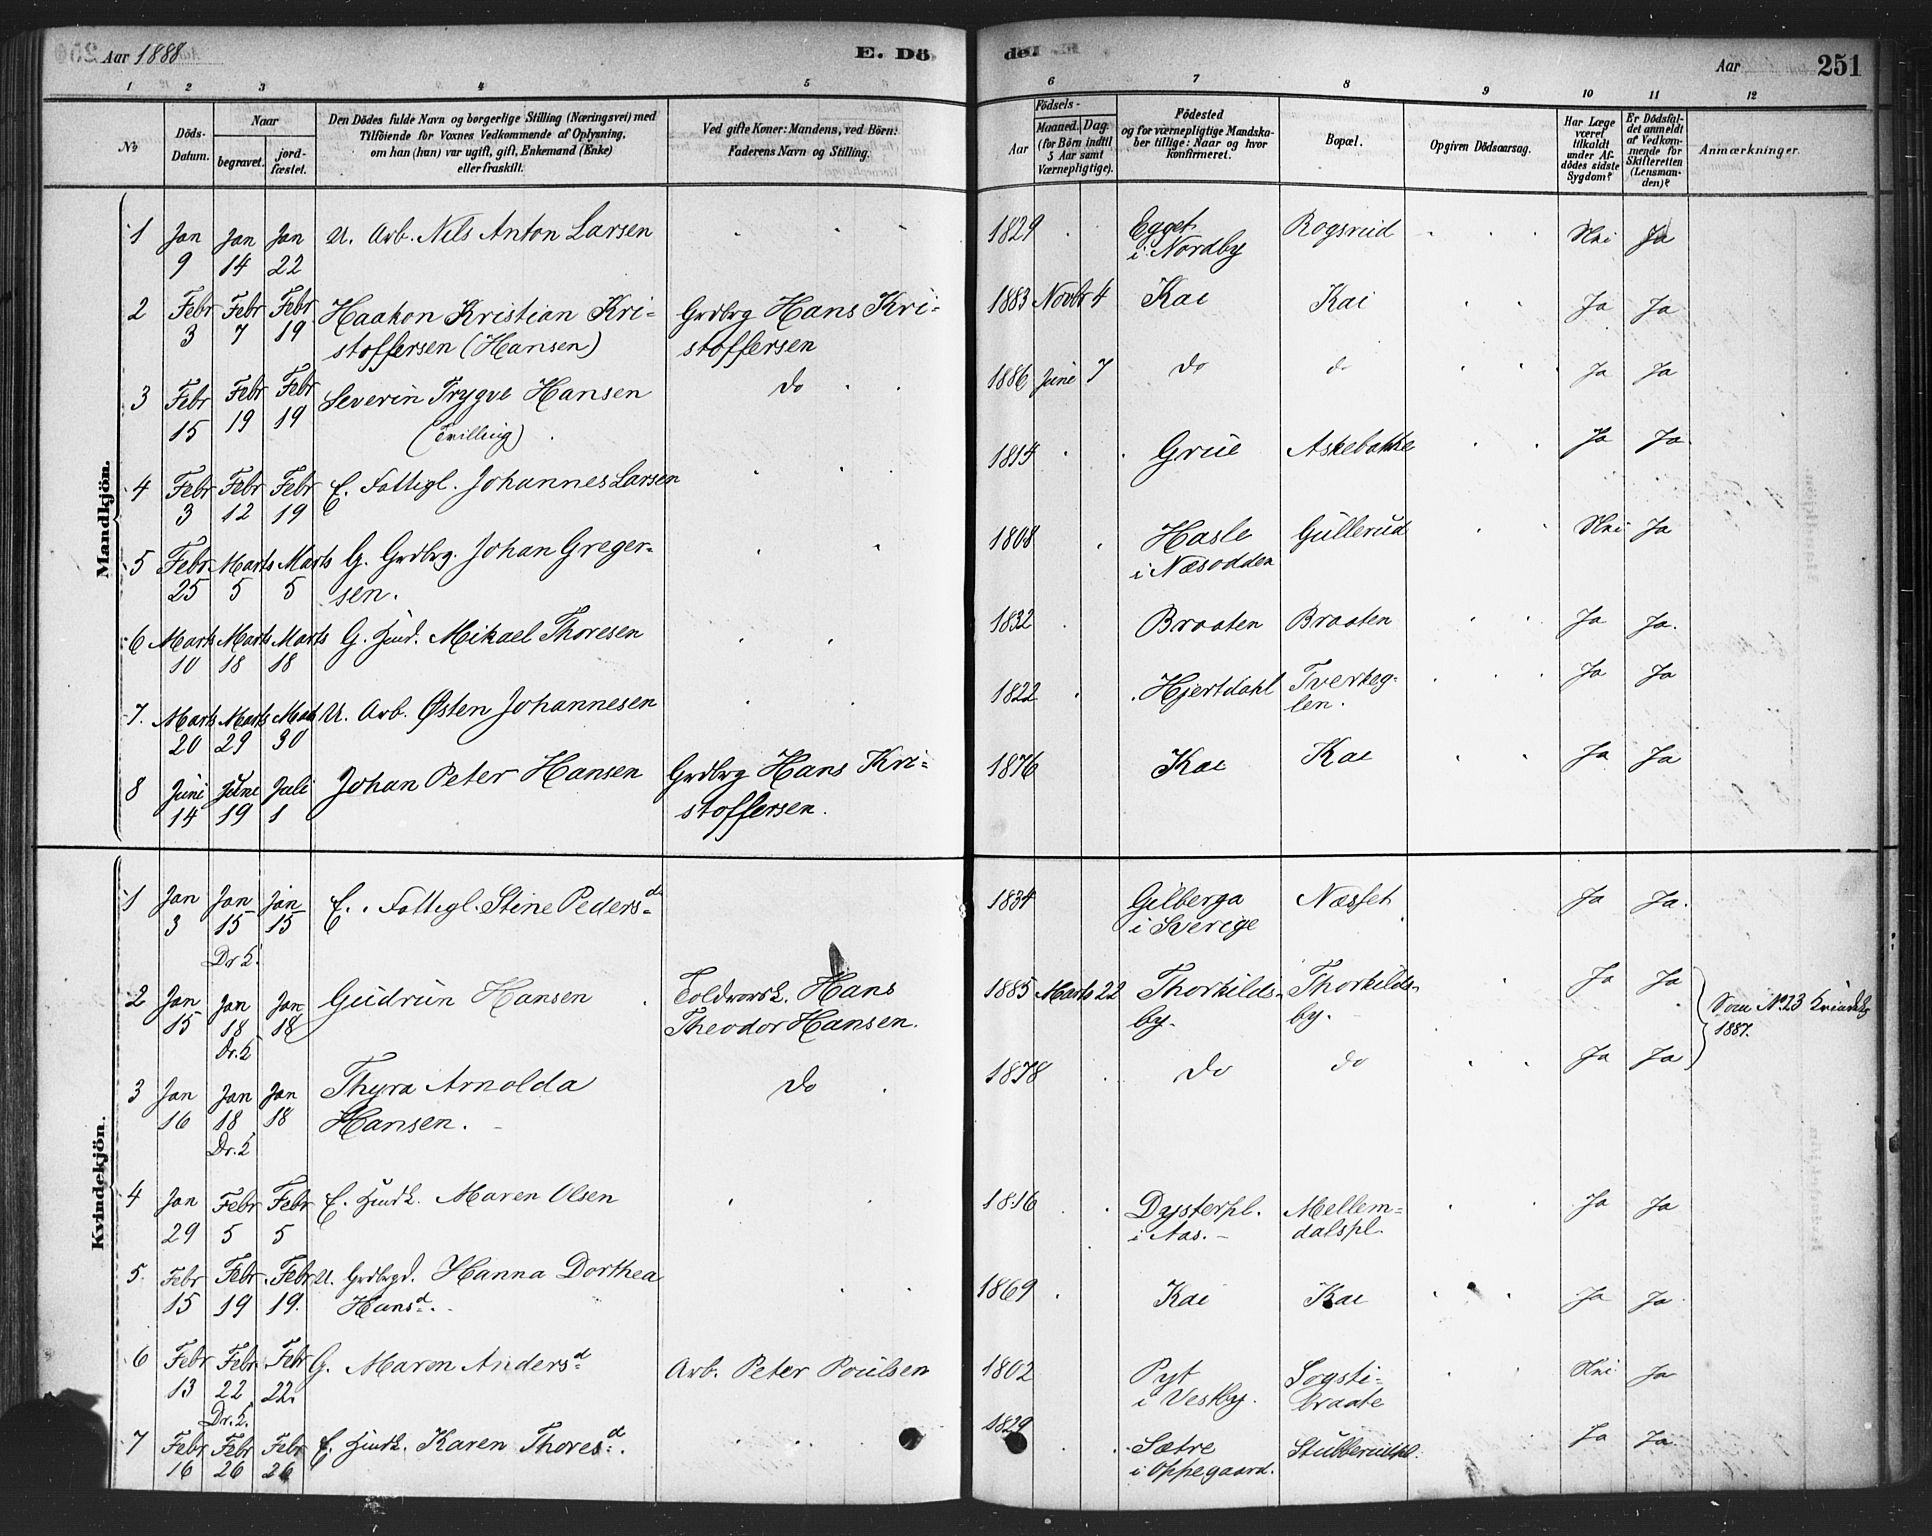 Aar 1888 E. Döde. Aar 251
1 2 3 4 5 6 7 8 9 10 11 12
No
Döds-Datum.
Naar
begravet.
jord-fæstet.
Den Dödes fulde Navn og borgerlige Stilling (Næringsvei) med
Tilföiende for Voxnes Vedkommende af Oplysning,
om han (hun) var ugift, gift, Enkemand (Enke)
eller fraskilt.
Ved gifte Koner: Mandens, ved Börn:
Faderens Navn og Stilling.
Födsels-
Aar
Maaned. Dag.
(for Börn indtil
5 Aar samt
Værnepligtige).
Födested
og for værnepligtige Mandska-
ber tillige: Naar og hvor
konfirmeret.
Bopæl.
Opgiven Dödsaarsag.
Har Læge
været
tilkaldt
under Af-
dödes sidste
Sygdom?
Er Dödsfal-
det anmeldt
af Vedkom-
mende for
Skifteretten
(Lensman-
den)?
Anmærkninger.
Mandkjön.
1 Jan 9 Jan 14 Jan 22 U. Arb. Nils Anton Larsen 1829 Egget i Nordby Rogsrud Nei Ja
2 Febr 3 Febr 7 Febr 19 Haakon Kristian Kri-
stoffersen (Hansen) Grdbrg Hans Kri-
stoffersen 1883 Novbr 4 Kai Kai Ja Ja
3 Febr 15 Febr 19 Febr 19 Severin Trygve Hansen
(Tvilling) do 1886 Juni 7 do do Ja Ja
4 Febr 3 Febr 12 Febr 19 E. Fattigl. Johannes Larsen 1814 Grue Askebakke Ja Ja
5 Febr 25 Marts 5 Marts 5 G. Grdbrg. Johan Greger-
sen. 1808 Hasle i Næsodden Gullerud Nei Ja
6 Marts 10 Marts 18 Marts 18 G. Husd. Mikael Thoresen 1832 Braaten Braaten Ja Ja.
7. Marts 20 Marts 29 Marts 30 U. Arb. Østen Johannesen 1822 Hjertdahl Tverkeg-
len. Ja Ja
8 Juni 14 Juni 19 Juli 1 Johan Peter Hansen Grdbrg Hans Kri-
stoffersen. 1876 Kai Kai Ja Ja
Kvindekjön.
1 Jan 3 Jan 15 Jan 15 E. Fattigl. Stine Pedersd. 1834 Gilberga i Sverige Næsset Ja Ja.
Dr.k.
2 Jan 15 Jan 18 Jan 18 Gudrun Hansen Toldroersk. Hans
Theodor Hansen. 1885 Marts 22 Thorkilds-
by. Thorkilds-
by. Ja Ja Som No 23 Kvindekj.
1887.
Dr.k
3 Jan 16 Jan 18 Jan 18 Thyra Arnolda
Hansen. do 1878 do do Ja Ja
Dr.k
4 Jan 29 Febr 5 Febr 5 E. Husk. Maren Olsen 1816 Dysterpl. i Aas. Mellem-
dalspl. Ja Ja
5. Febr 15 Febr 19 Febr 19. U. Grdbrgd. Hanna Dorthea
Hansd. 1869 Kai Kai Ja Ja
6 Febr 13 Febr 22 Febr 22. G. Maren Andersd Arb. Peter Poulsen 1802 Pyt i Vestby. Sogsti-
braate Nei Ja
Dr.k.
7 Febr 16 Febr 26 Febr 26 E. Husk. Karen Thoresd. 1829 Sætre i Oppegaard. Stubberudpl. Ja Ja